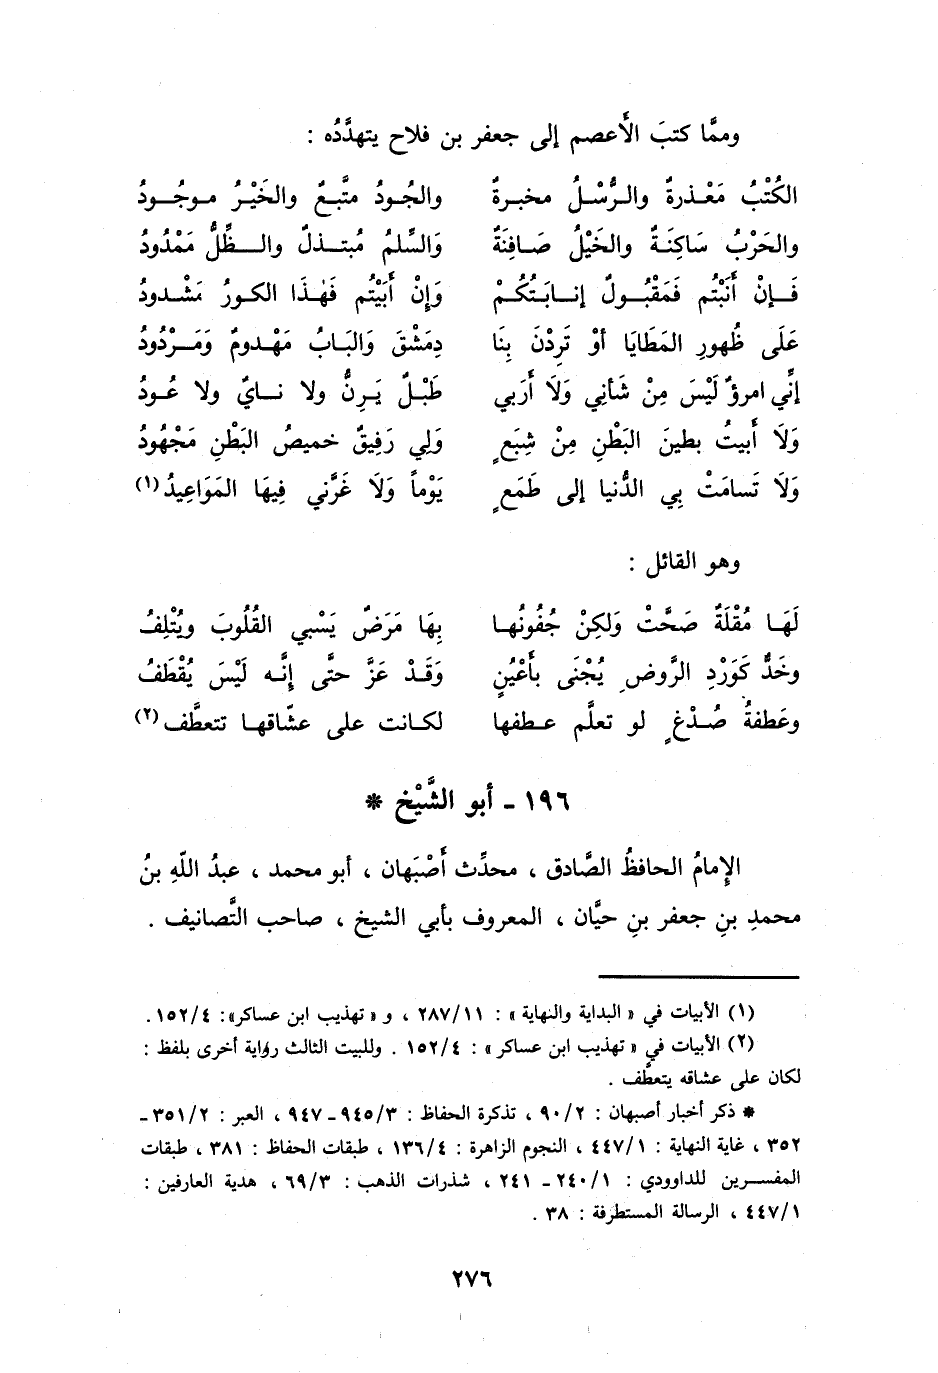 وممَّا كتبَ الأَعصم إلى جعفر بن فلاح يتهدَّدُه :
الكُتْبُ مَعْـذرةٌ والـرُّسْـلُ مخبـرةٌ والجُـودُ متَّبـعٌ والخَيْـرُ مـوجُـودُ
والحَرْبُ سَاكِنَـةٌ والخَيْلُ صَـافِنَةٌ وَالسِّلمُ مُبتـذلٌ والـظِّلُّ مَمْدُودُ
فَـإنْ أَنَبْتُم فَمَقْبُـولٌ إنـابَـتُكُـمْ وَإِنْ أَبَيْتُم فَهٰذَا الكـورُ مَشْـدودُ
عَلَى ظُهورِ المَطَايَا أوْ تَرِدْنَ بِنَا دِمَشْقَ وَالبَـابُ مَهْـدومٌ وَمَـرْدُودُ
إنِّي امرؤٌ لَيْسَ مِنْ شَأني وَلَا أَرَبي طَبْـلٌ يَـرِنُّ ولا نـايٌ ولا عُـودُ
وَلَا أَبيتُ بطينَ البَطْنِ مِنْ شِبَعٍ وَلِي رَفِيقٌ خميصُ البَطْنِ مَجْهُودُ
وَلَا تَسامَتْ بِي الدُّنيا إلى طَمَعٍ يَوْماً وَلَا غَرَّني فِيهَا المَوَاعِيدُ (١)
وهو القائل :
لَهَـا مُقْلَةٌ صَحَّتْ وَلكِنْ جُفُونُهـا بِهَا مَرَضٌ يَسْبي القُلُوبَ ويُتْلِفُ
وخَدٌّ كَوَرْدِ الرَّوضِ يُجْنَى بأَعْيُنٍ وَقَـدْ عَزَّ حتَّى إِنَّـه لَيْسَ يُقْطَفُ
وعَطفةُ صُـدْغٍ لو تعلَّم عـطفها لكـانت على عشّاقهـا تتعطَّف (٢)
١٩٦ ـ أبو الشَّيْخ *
الإِمامُ الحافظُ الصَّادق ، محدِّث أَصْبَهان ، أبو محمد ، عبدُ اللّهِ بنُ
محمدِ بنِ جعفر بنِ حيَّان ، المعروف بأبي الشيخ ، صاحب التَّصانيف .
(١) الأبيات في « البداية والنهاية » : ٢٨٧/١١ ، و « تهذيب ابن عساكر»: ١٥٢/٤.
(٢) الأبيات في « تهذيب ابن عساكر » : ١٥٢/٤ . وللبيت الثالث رؤاية أخرى بلفظ :
لكان على عشاقه يتعطَّف .
* ذكر أخبار أصبهان : ٩٠/٢ ، تذكرة الحفاظ : ٩٤٥/٣ ـ ٩٤٧ ، العبر : ٣٥١/٢ ـ
٣٥٢ ، غاية النهاية : ٤٤٧/١ ، النجوم الزاهرة : ١٣٦/٤ ، طبقات الحفاظ : ٣٨١ ، طبقات
المفسـرين للداوودي : ٢٤٠/١ ـ ٢٤١ ، شذرات الذهب : ٦٩/٣ ، هدية العارفين :
٤٤٧/١ ، الرسالة المستطرفة : ٣٨ .
٢٧٦